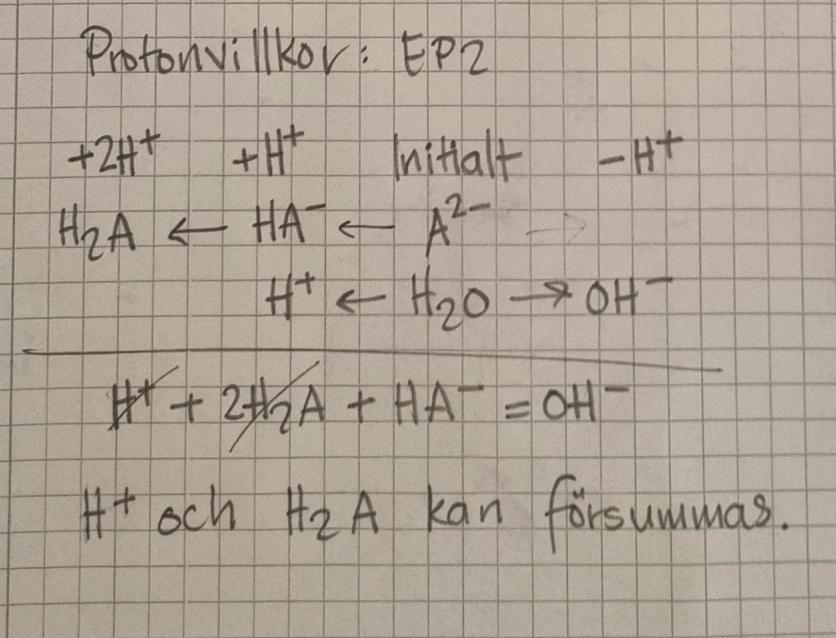 Protonvillkor: EP2
+2H⁺ +H⁺ Initialt -H⁺
H₂A ← HA⁻ ← A²⁻ →
H⁺ ← H₂O → OH⁻
H⁺ + 2H₂A + HA⁻ = OH⁻
H⁺ och H₂A kan försummas.